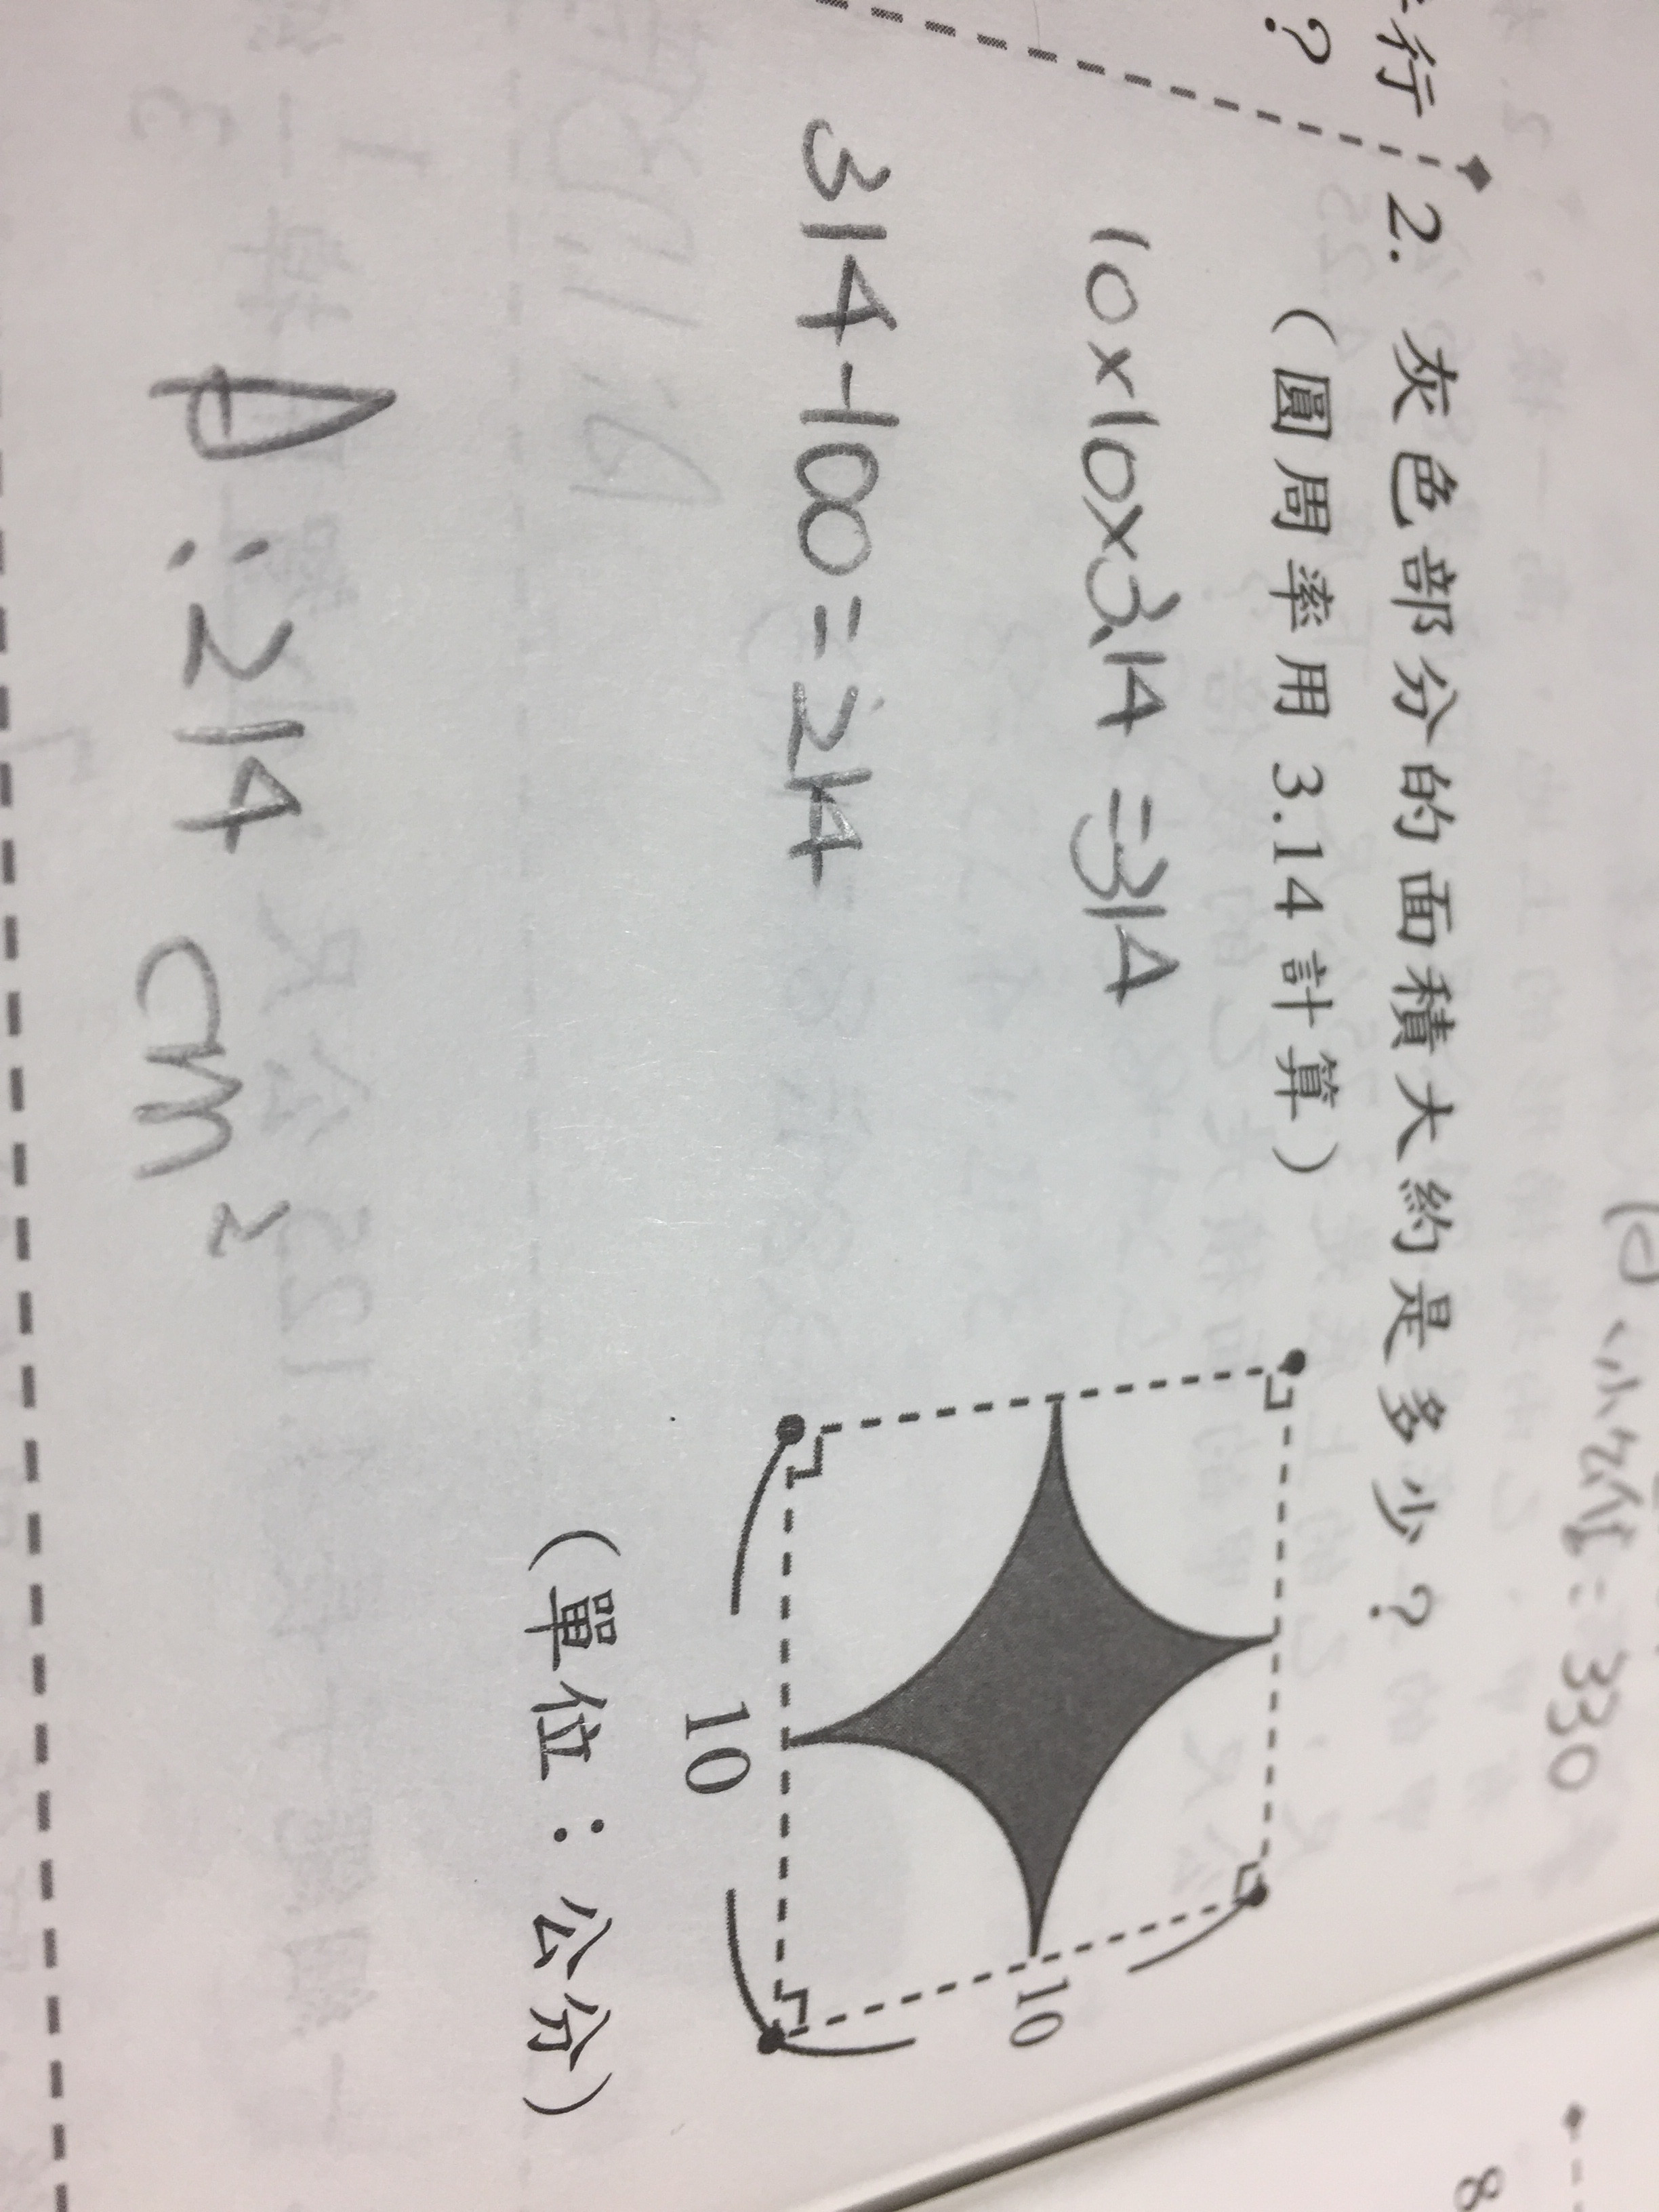 行
？
2. 灰色部分的面積大約是多少？
（圓周率用 3.14 計算）
10×10×3.14=314
314-100=214
A:214 cm²
10
10
（單位：公分）
330
8